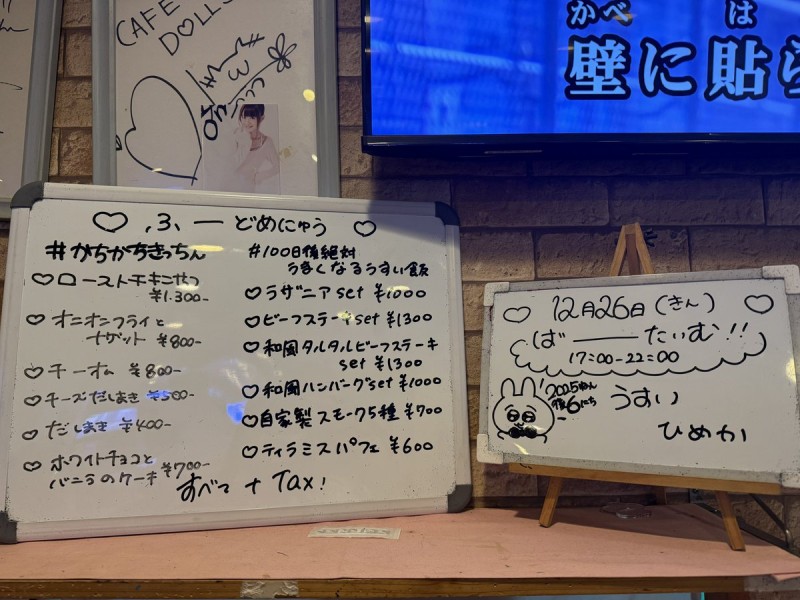 CAFE
DOLLS
かべ は
壁に貼ら
♡ ふ、ーどめにゅう ♡
#がちがちきっちん
♡ローストチキンせっと
¥1.300-
♡ オニオンフライと
ナゲット ¥800-
♡ チーオム ¥800-
♡ チーズだしまき ¥500-
♡ だしまき ¥400-
♡ ホワイトチョコと
バニラのケーキ ¥700-
#100日後絶対
うまくなるうすい飯
♡ラザニアset ¥1000
♡ビーフステーキset ¥1300
♡和風タルタルビーフステーキ
set ¥1300
♡和風ハンバーグset ¥1000
♡自家製スモーク5種 ¥700
♡ティラミスパフェ ¥600
すべて + Tax!
♡ 12月26日(きん) ♡
ばーーたいむ!!
17:00-22:00
2025ねん
後6にち
うすい
ひめか